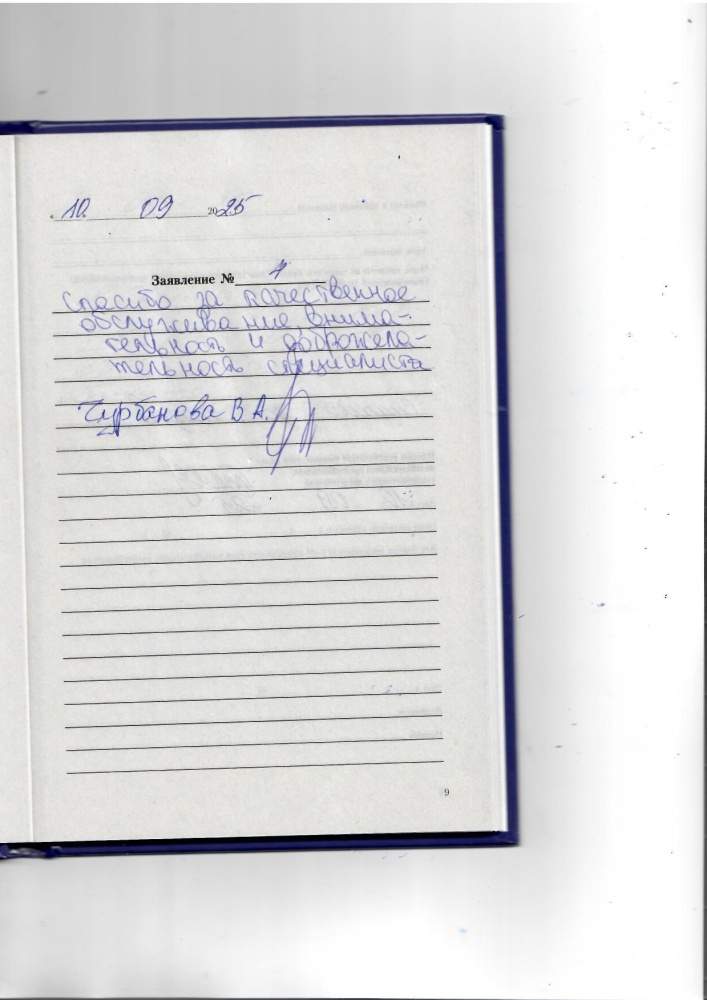 « 10. 09 2025
Заявление № 1
Спасибо за качественное
обслуживание, внима-
тельность и доброжела-
тельность специалиста
Чурбанова В А.
9